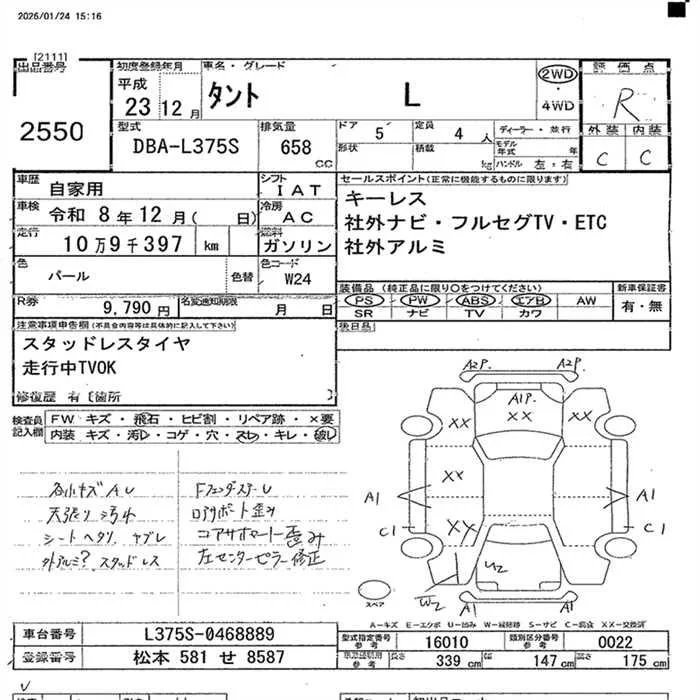 2026/01/24 15:16
[2111]
出品番号
2550
初度登録年月
平成
23 12月
車名・グレード
タント L
2WD
・
4WD
評価点
R
外装 内装
C C
型式
DBA-L375S
排気量
658
cc
ドア
5
定員
4 人
形状
積載
kg
ディーラー・並行
モデル年式 年
ハンドル 左・右
車歴
自家用
シフト
IAT
車検
令和 8年12月( 日)
冷房
AC
走行
10万9千397 km
燃料
ガソリン
色
パール
色替
色コード
W24
R券
9,790円
名変通知期限
月 日
セールスポイント(正常に機能するものに限ります)
キーレス
社外ナビ・フルセグTV・ETC
社外アルミ
装備品(純正品に限り○をつけてください)
PS PW ABS エアB AW
SR ナビ TV カワ
新車保証書
有・無
後日品
注意事項申告欄(不具合内容等は具体的に記入して下さい)
スタッドレスタイヤ
走行中TVOK
修復歴 有〔箇所 〕
検査員
記入欄
FW キズ・飛石・ヒビ割・リペア跡・×要
内装 キズ・汚レ・コゲ・穴・スレ・キレ・破レ
各小キズAU
天張り汚れ
シートヘタリ、ヤブレ
外アルミ?スタッドレス
FフェンダーステーU
コアサポート歪み
左センターピラー修正
A2P. A2P.
A1P.
XX XX XX
XX
A1 A1
XX
C1 C1
U2
W2
A1 A1
スペア
A-キズ E-エクボ U-凹み W-補修跡 S-サビ C-腐食 XX-交換済
車台番号
L375S-0468889
登録番号
松本 581 せ 8587
型式指定番号
参考
16010
類別区分番号
参考
0022
参考
長さ
339 cm
幅
147 cm
高さ
175 cm